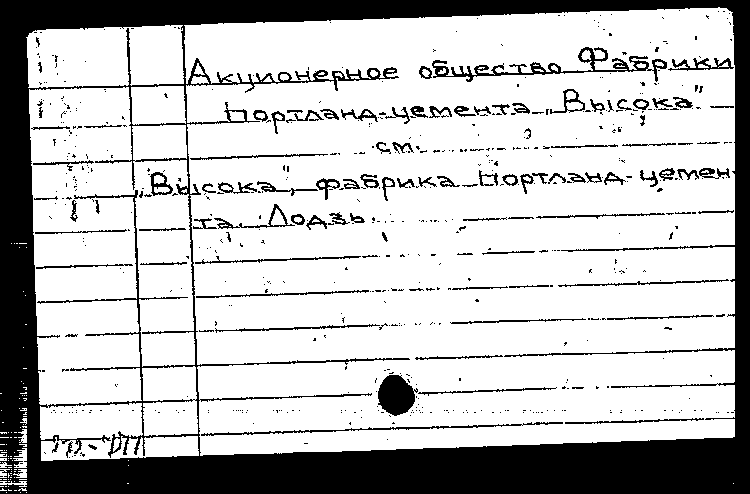 Акционерное общество Фабрики
портланд-цемента „Высока"
см.
„Высока", фабрика портланд-цемен-
та. Лодзь.